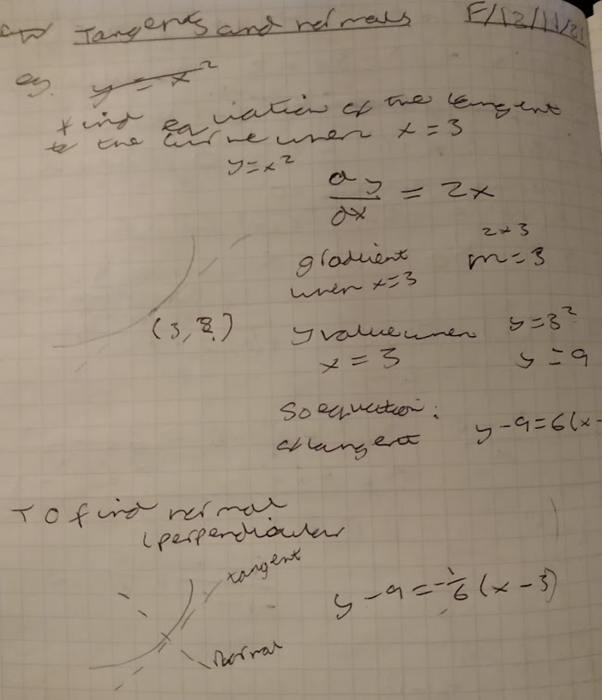 Tangents and normals F/12/11/21
eg. y = x²
Find equation of the tangent
to the curve when x = 3
y=x²
dy/dx = 2x
2×3
gradient m=3
when x=3
(3, ?)
y value when y=3²
x = 3 y = 9
So equation:
of tangent y-9=6(x-
To find normal
(perpendicular
tangent
y-9=-1/6(x-3)
Normal